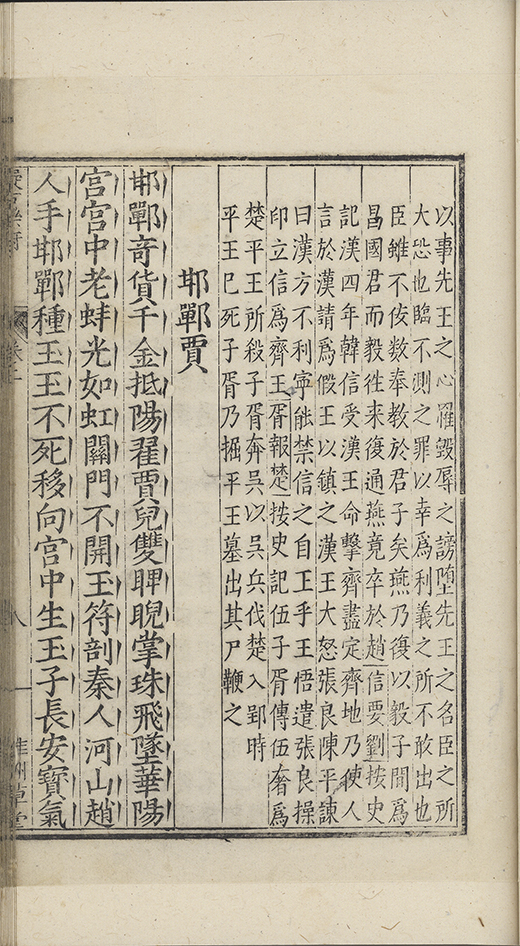 以事先王之心罹毀辱之謗墮先王之名臣之所
大恐也臨不測之罪以幸為利義之所不敢出也
臣雖不佞数奉教於君子矣燕乃復以毅子間爲
昌國君而毅徃来復通燕竟卒於趙信要劉按史
記漢四年韓信受漢王命擊齊盡定齊地乃使人
言於漢請爲假王以鎮之漢王大怒張良陳平諫
曰漢方不利寧能禁信之自王乎王悟遣張良操
印立信爲齊王胥報楚按史記伍子胥傳伍奢爲
楚平王所殺子胥奔吳以吳兵伐楚入郢時
平王已死子胥乃掘平王墓出其尸鞭之
邯鄲賈
邯鄲竒貨千金抵陽翟賈兒雙睥睨掌珠飛墜華陽
宮宮中老蚌光如虹關門不開玉符剖秦人河山趙
人手邯鄲種玉玉不死移向宮中生玉子長安寶氣
八